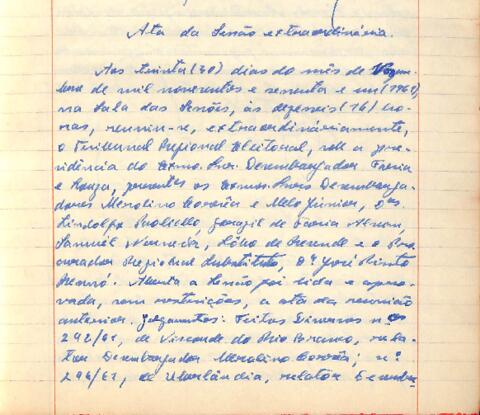 Ata da Sessão extraordinária.
Aos trinta (30) dias do mês de Novem-
bro de mil novecentos e sessenta e um (1961)
na Sala das Sessões, às dezesseis (16) ho-
ras, reuniu-se, extraordinàriamente,
o Tribunal Regional Eleitoral, sob a pre-
sidência do Exmo. Snr. Desembargador Faria
e Souza, presentes os Exmos. Snrs. Desembarga-
dores Merolino Corrêa e Melo Júnior, Drs.
Lindolfo Paoliello, de Faria
Samuel, Lôbo de Resende e o Pro-
curador Regional Substituto, Dr. José Pinto
Aberta a Sessão foi lida e apro-
vada, sem restrições, a ata da reunião
anterior. Julgamentos: Feitos Diversos nos
292/61, de Visconde do Rio Branco, rela-
tor Desembargador Merolino Corrêa; nº
296/61, de Uberlândia, relator Desembar-